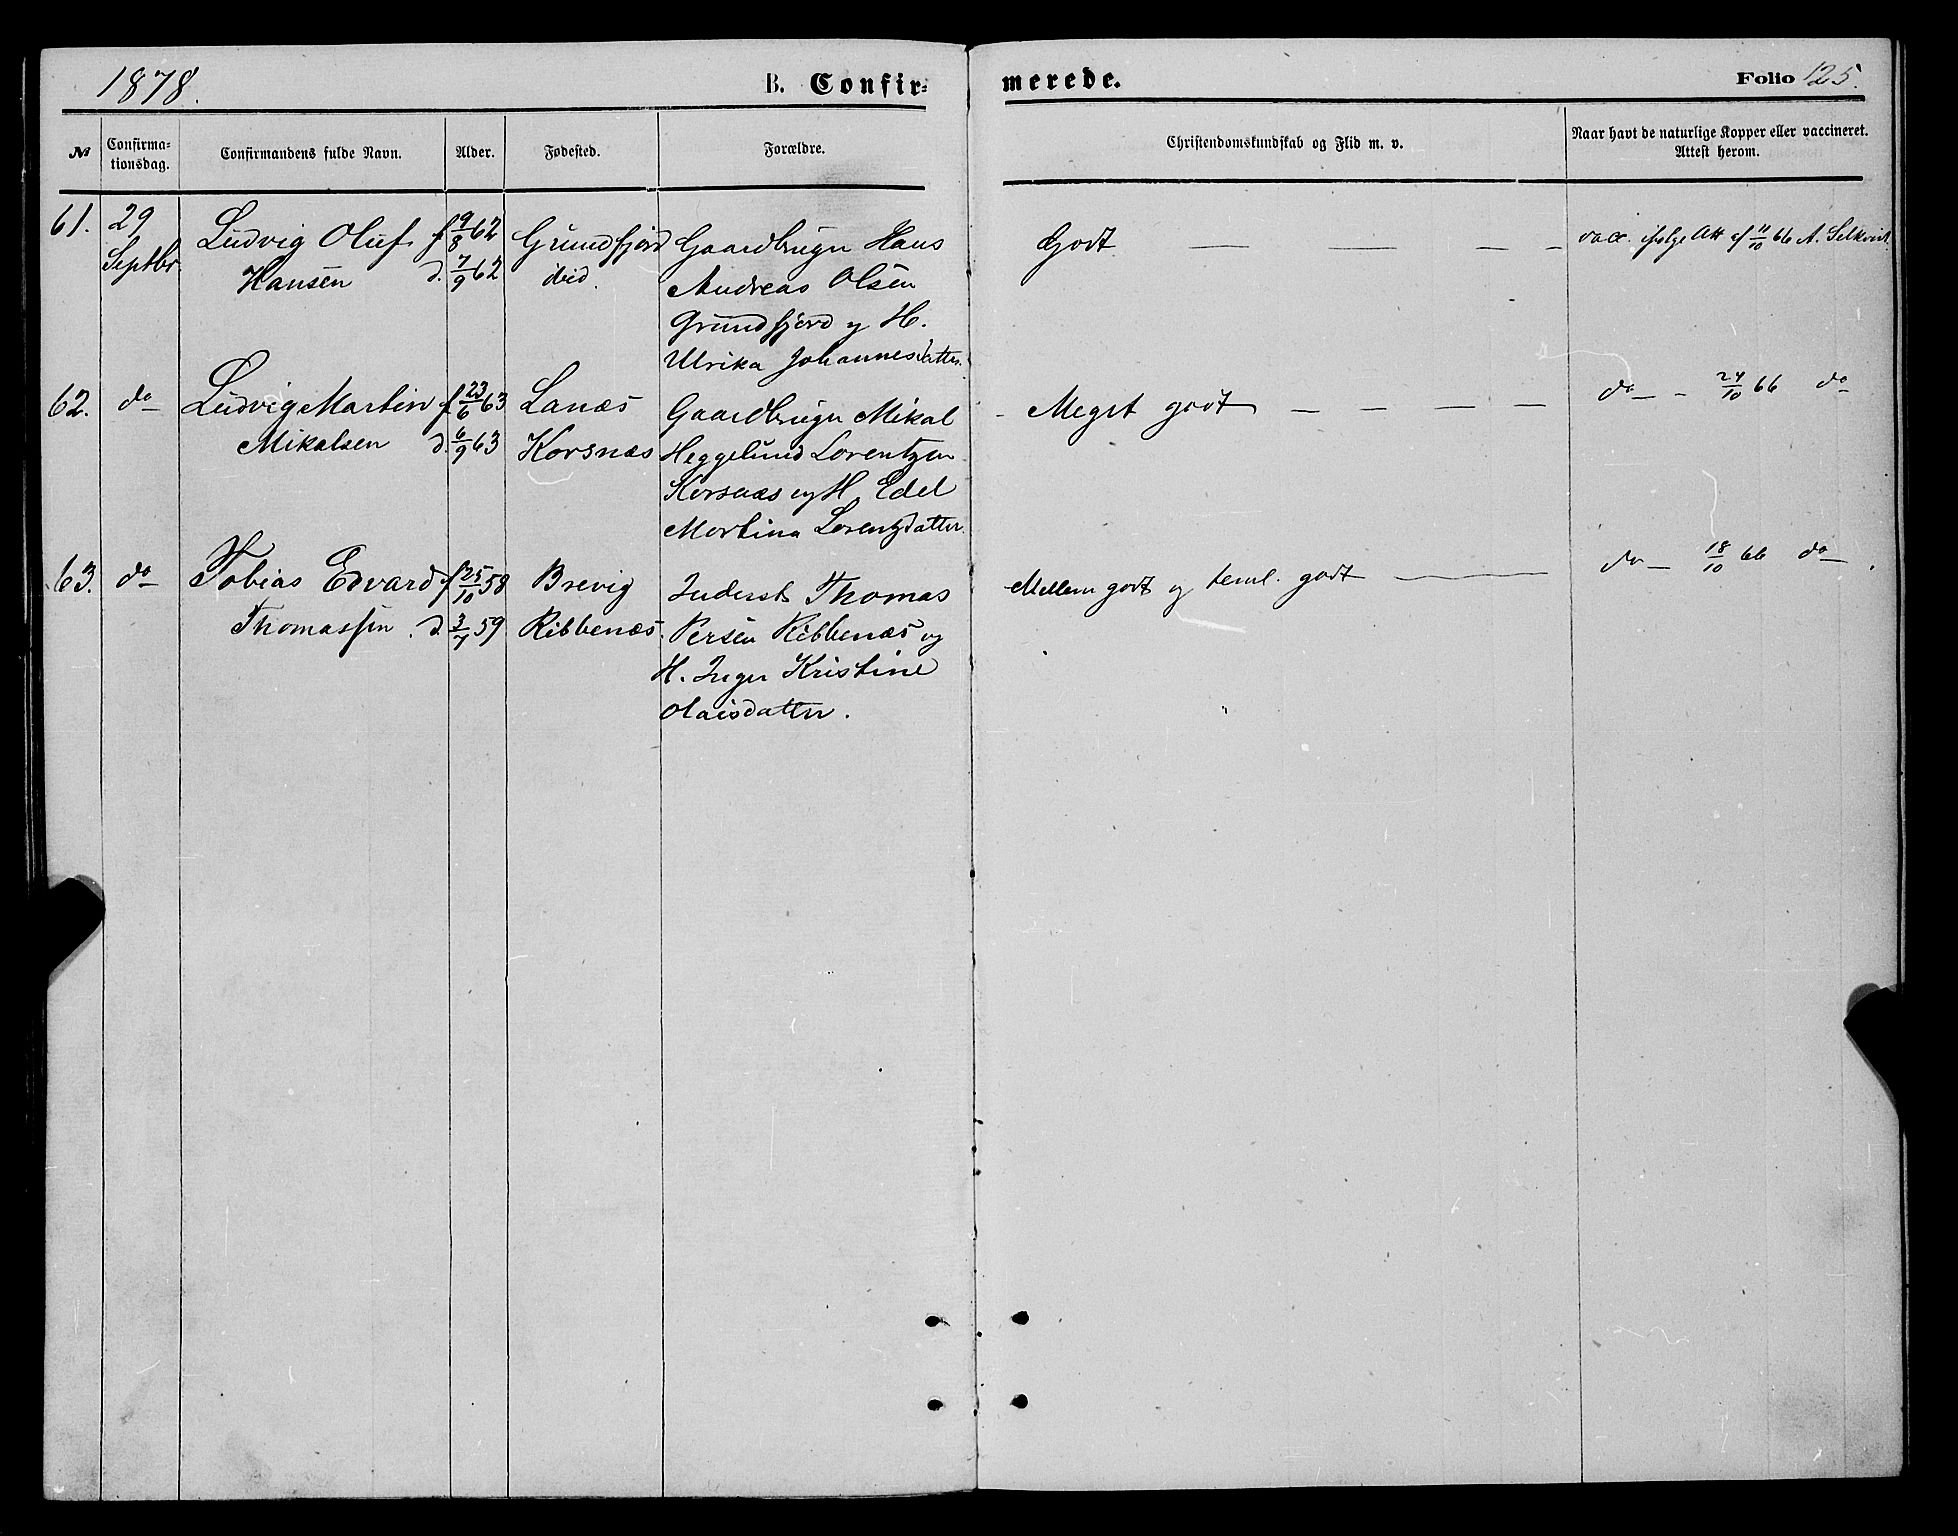 1878.
B. Confir-
merede.
Folio 125.
№
Confirma-
tionsdag.
Confirmandens fulde Navn.
Alder.
Fødested.
Forældre.
Christendomskundskab og Flid m. v.
Naar havt de naturlige Kopper eller vaccineret.
Attest herom.
61. 29 Ludvig Oluf f 9/8 62 Grundfjord Gaardbruger Hans Godt — — — — vacc. ifølge Att af 11/10 66 A. Selkvist
Septbr Hansen d. 7/9 62 ibid. Andreas Olsen
Grundfjord og H.
Ulrika Johannesdatter.
62. do Ludvig Martin f 23/6 63 Lanæs Gaardbruger Mikal - Meget godt — — — — do — - 24/10 66 do
Mikalsen d. 6/9 63 Korsnæs Heggelund Lorentzen
Korsnæs og H. Edel
Martina Lorentzdatter.
63. do Tobias Edvard f 25/10 58 Brevig Inderst Thomas Mellem godt og teml. godt — do — 18/10 66 do
Thomassen. d. 3/7 59 Ribbenæs. Persen Ribbenæs og
H. Inger Kristine
Olaisdatter.